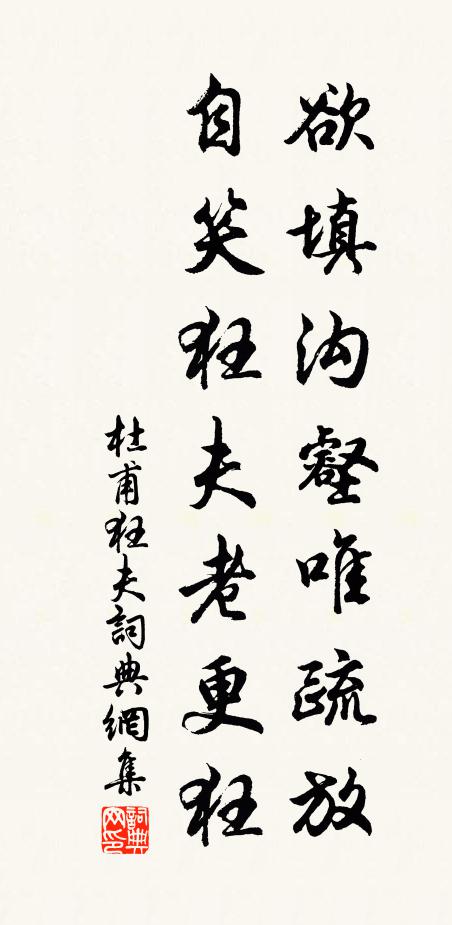 欲填沟壑唯疏放
自笑狂夫老更狂
杜甫狂夫詞典網集
詞典网印